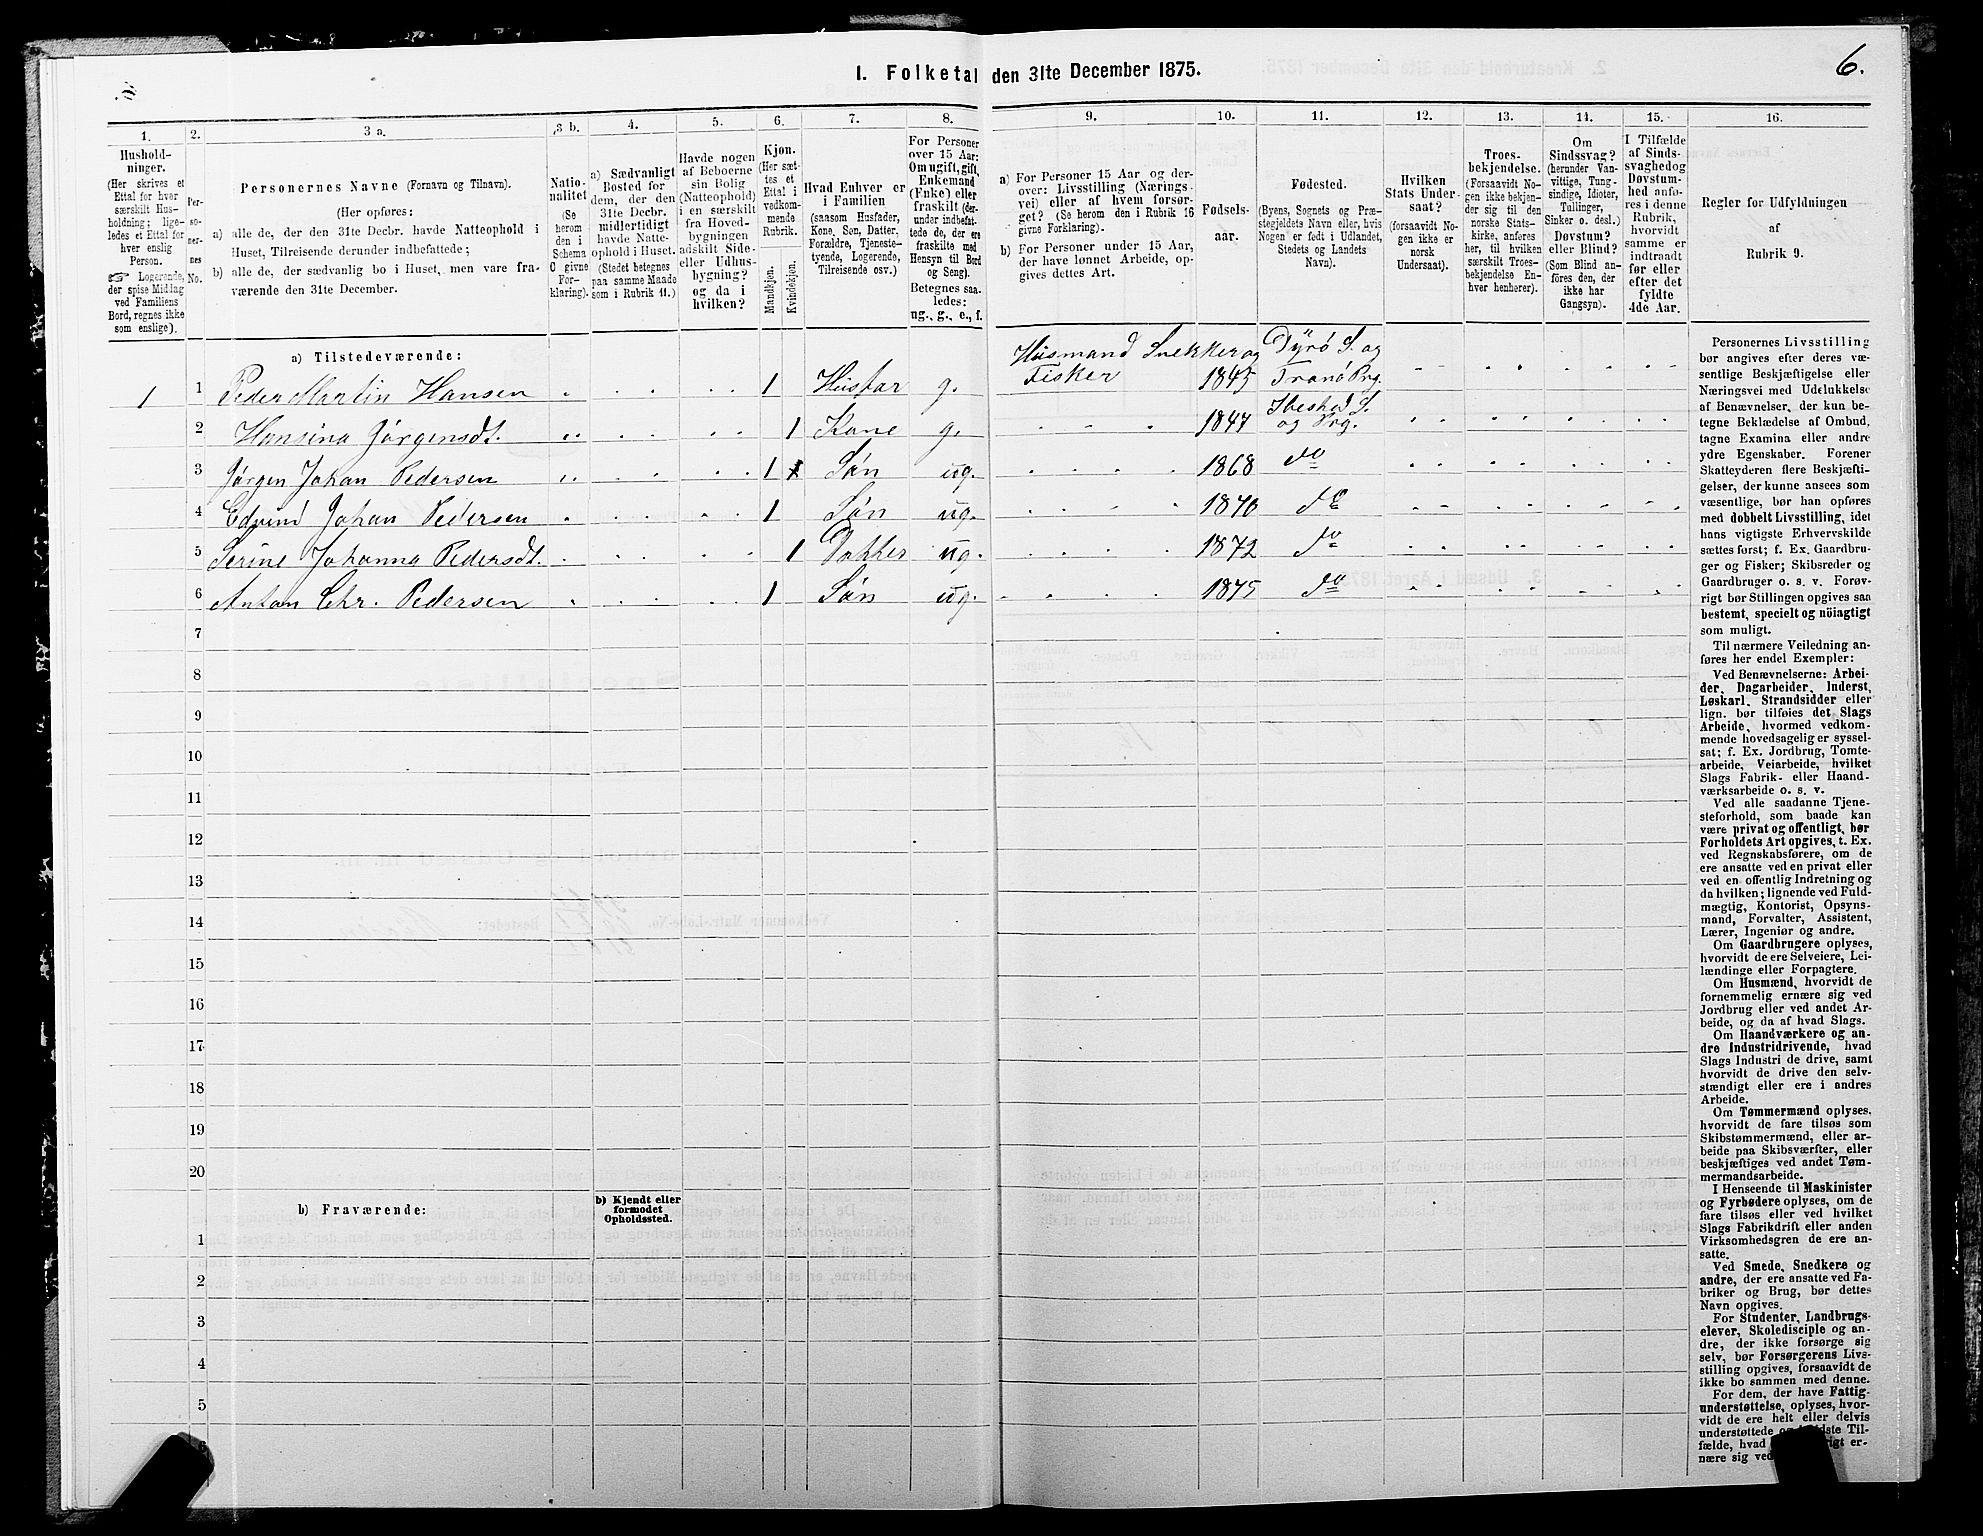 6.
I. Folketal den 31te December 1875.
1.
Hushold-
ninger.
(Her skrives et
Ettal for hver
særskilt Hus-
holdning; lige-
ledes et Ettal for
hver enslig
Person.
☞ Logerende,
der spise Middag
ved Familiens
Bord, regnes ikke
som enslige).
2.
Per-
so-
ner-
nes
No.
3 a.
Personernes Navne (Fornavn og Tilnavn).
(Her opføres:
a) alle de, der den 31te Decbr. havde Natteophold i
Huset, Tilreisende derunder indbefattede;
b) alle de, der sædvanlig bo i Huset, men vare fra-
værende den 31te December.
3 b.
Natio-
nalitet
(Se
herom
den i
Schema
O givne
For-
klaring).
4.
a) Sædvanligt
Bosted for
dem, der den
31te Decbr.
midlertidigt
havde Natte-
ophold i Huset.
(Stedet betegnes
paa samme Maade
som i Rubrik 11.)
5.
Havde nogen
af Beboerne
sin Bolig
(Natteophold)
i en særskilt
fra Hoved-
bygningen
adskilt Side-
eller Udhus-
bygning?
og da i
hvilken?
6.
Kjøn.
(Her sæt-
tes et
Ettal i
vedkom-
mende
Rubrik.
Mandkjøn.
Kvindekjøn.
7.
Hvad Enhver er
i Familien
(saasom Husfader,
Kone, Søn, Datter,
Forældre, Tjeneste-
tyende, Logerende,
Tilreisende osv.)
8.
For Personer
over 15 Aar:
Om ugift, gift,
Enkemand
(Enke) eller
fraskilt (der-
under indbefat-
tede de, der ere
fraskilte med
Hensyn til Bord
og Seng).
Betegnes saa-
ledes:
ug., g., e., f.
9.
a) For Personer 15 Aar og der-
over: Livsstilling (Nærings-
vei) eller af hvem forsør-
get? (Se herom den i Rubrik 16
givne Forklaring).
b) For Personer under 15 Aar,
der have lønnet Arbeide, op-
gives dettes Art.
10.
Fødsels-
aar.
11.
Fødested.
(Byens, Sognets og Præ-
stegjeldets Navn eller, hvis
Nogen er født i Udlandet,
Stedets og Landets
Navn).
12.
Hvilken
Stats Under-
saat?
(forsaavidt No-
gen ikke er
norsk
Undersaat).
13.
Troes-
bekjendelse.
(Forsaavidt No-
gen ikke bekjen-
der sig til den
norske Stats-
kirke, anføres
her, til hvilken
særskilt Troes-
bekjendelse En-
hver henhører).
14.
Om
Sindssvag?
(herunder Van-
vittige, Tung-
sindige, Idioter,
Tullinger,
Sinker o. desl.)
Døvstum?
eller Blind?
(Som Blind an-
føres den, der
ikke har
Gangsyn).
15.
I Tilfælde
af Sinds-
svaghed og
Døvstum-
hed anfø-
res i denne
Rubrik,
hvorvidt
samme er
indtraadt
før eller
efter det
fyldte
4de Aar.
16.
Regler for Udfyldningen
af
Rubrik 9.
a) Tilstedeværende:
1 1 Peder Martin Hansen 1 Husfar g. Husmand Snekker og Fisker 1845 Dyrö S. og Tranö Prg.
2 Hansina Jørgensdt. 1 Kone g. 1847 Ibestad S. og Prg.
3 Jørgen Johan Pedersen 1 Søn ug. 1868 do
4 Edvind Johan Pedersen 1 Søn ug. 1870 do
5 Serine Johanna Pedersdt. 1 Datter ug. 1872 do
6 Anton Chr. Pedersen 1 Søn ug. 1875 do
7
8
9
10
11
12
13
14
15
16
17
18
19
20
b) Fraværende:
b) Kjendt eller
formodet
Opholdssted.
1
2
3
4
5
Personernes Livsstilling
bør angives efter deres væ-
sentlige Beskjæftigelse eller
Næringsvei med Udelukkelse
af Benævnelser, der kun be-
tegne Beklædelse af Ombud,
tagne Examina eller andre
ydre Egenskaber. Forener
Skatteyderen flere Beskjæfti-
gelser, der kunne ansees som
væsentlige, bør han opføres
med dobbelt Livsstilling, idet
hans vigtigste Erhvervskilde
sættes først; f. Ex. Gaardbru-
ger og Fisker; Skibsreder og
Gaardbruger o. s. v. Forøv-
rigt bør Stillingen opgives saa
bestemt, specielt og nöiagtigt
som muligt.
Til nærmere Veiledning an-
føres her endel Exempler:
Ved Benævnelserne: Arbei-
der, Dagarbeider, Inderst,
Løskarl, Strandsidder eller
lign. bør tilføies det Slags
Arbeide, hvormed vedkom-
mende hovedsagelig er syssel-
sat; f. Ex. Jordbrug, Tomte-
arbeide, Veiarbeide, hvilket
Slags Fabrik- eller Haand-
værksarbeide o. s. v.
Ved alle saadanne Tjene-
steforhold, som baade kan
være privat og offentligt, bør
Forholdets Art opgives, t. Ex.
ved Regnskabsførere, om de
ere ansatte ved en privat eller
ved en offentlig Indretning og
da hvilken; lignende ved Fuld-
mægtig, Kontorist, Opsyns-
mand, Forvalter, Assistent,
Lærer, Ingeniør og andre.
Om Gaardbrugere oplyses,
hvorvidt de ere Selveiere, Lei-
lændinge eller Forpagtere.
Om Husmænd, hvorvidt de
fornemmelig ernære sig ved
Jordbrug eller ved andet Ar-
beide, og da af hvad Slags.
Om Haandværkere og an-
dre Industridrivende, hvad
Slags Industri de drive, samt
hvorvidt de drive den selv-
stændigt eller ere i andres
Arbeide.
Om Tømmermænd oplyses,
hvorvidt de fare tilsøs som
Skibstømmermænd, eller ar-
beide paa Skibsværfter, eller
beskjæftiges ved andet Tøm-
mermandsarbeide.
I Henseende til Maskinister
og Fyrbødere oplyses, om de
fare tilsøs eller ved hvilket
Slags Fabrikdrift eller anden
Virksomhedsgren de ere an-
satte.
Ved Smede, Snedkere og
andre, der ere ansatte ved Fa-
briker og Brug, bør dettes
Navn opgives.
For Studenter, Landbrugs-
elever, Skoledisciple og an-
dre, der ikke forsørge sig
selv, bør Forsørgerens Livs-
stilling opgives, forsaavidt de
ikke bo sammen med denne.
For dem, der have Fattig-
understøttelse, oplyses, hvor-
vidt de ere helt eller delvis
understøttede
fælde, hvad
nære sig